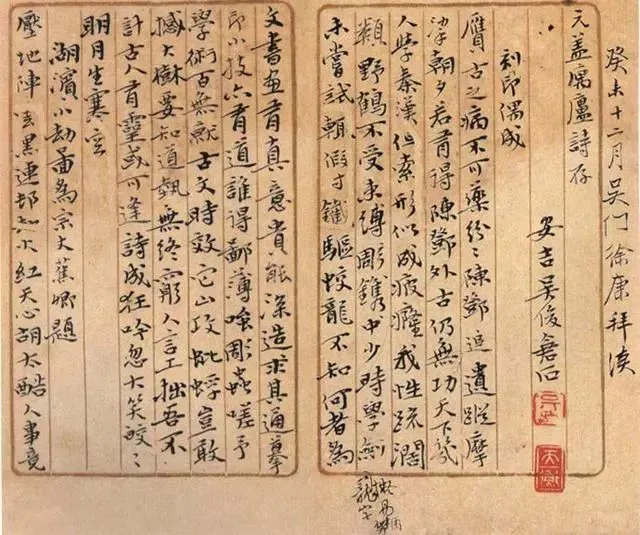 癸未十二月吴门徐康拜讀
元蓋寓廬詩存
安吉吴俊倉石
刻印偶成
贋古之病不可藥紛〻陳鄧追遺蹤摩
挲朝夕若有得陳鄧外古仍無功天下幾
人學秦漢但索形似成疲癃我性疏闊
類野鶴不受束縛雕鐫中少時學劍
未嘗試輒假寸鐵驅蛟龍不知何者為
文書畫有真意貴能深造求其通摹
印小技亦有道誰得鄙薄嗤雕蟲嗟予
學術百無就古文時效它山攻蚍蜉豈敢
撼大樹要知道藝無終窮人言工拙吾不
計古人有靈或可逢詩成狂吟忽大笑皎〻
明月生寒空
湖濱小劫圖為宗大蕉卿題
壓地陣雲黑連邨水紅天心胡太酷人事竟
龍字